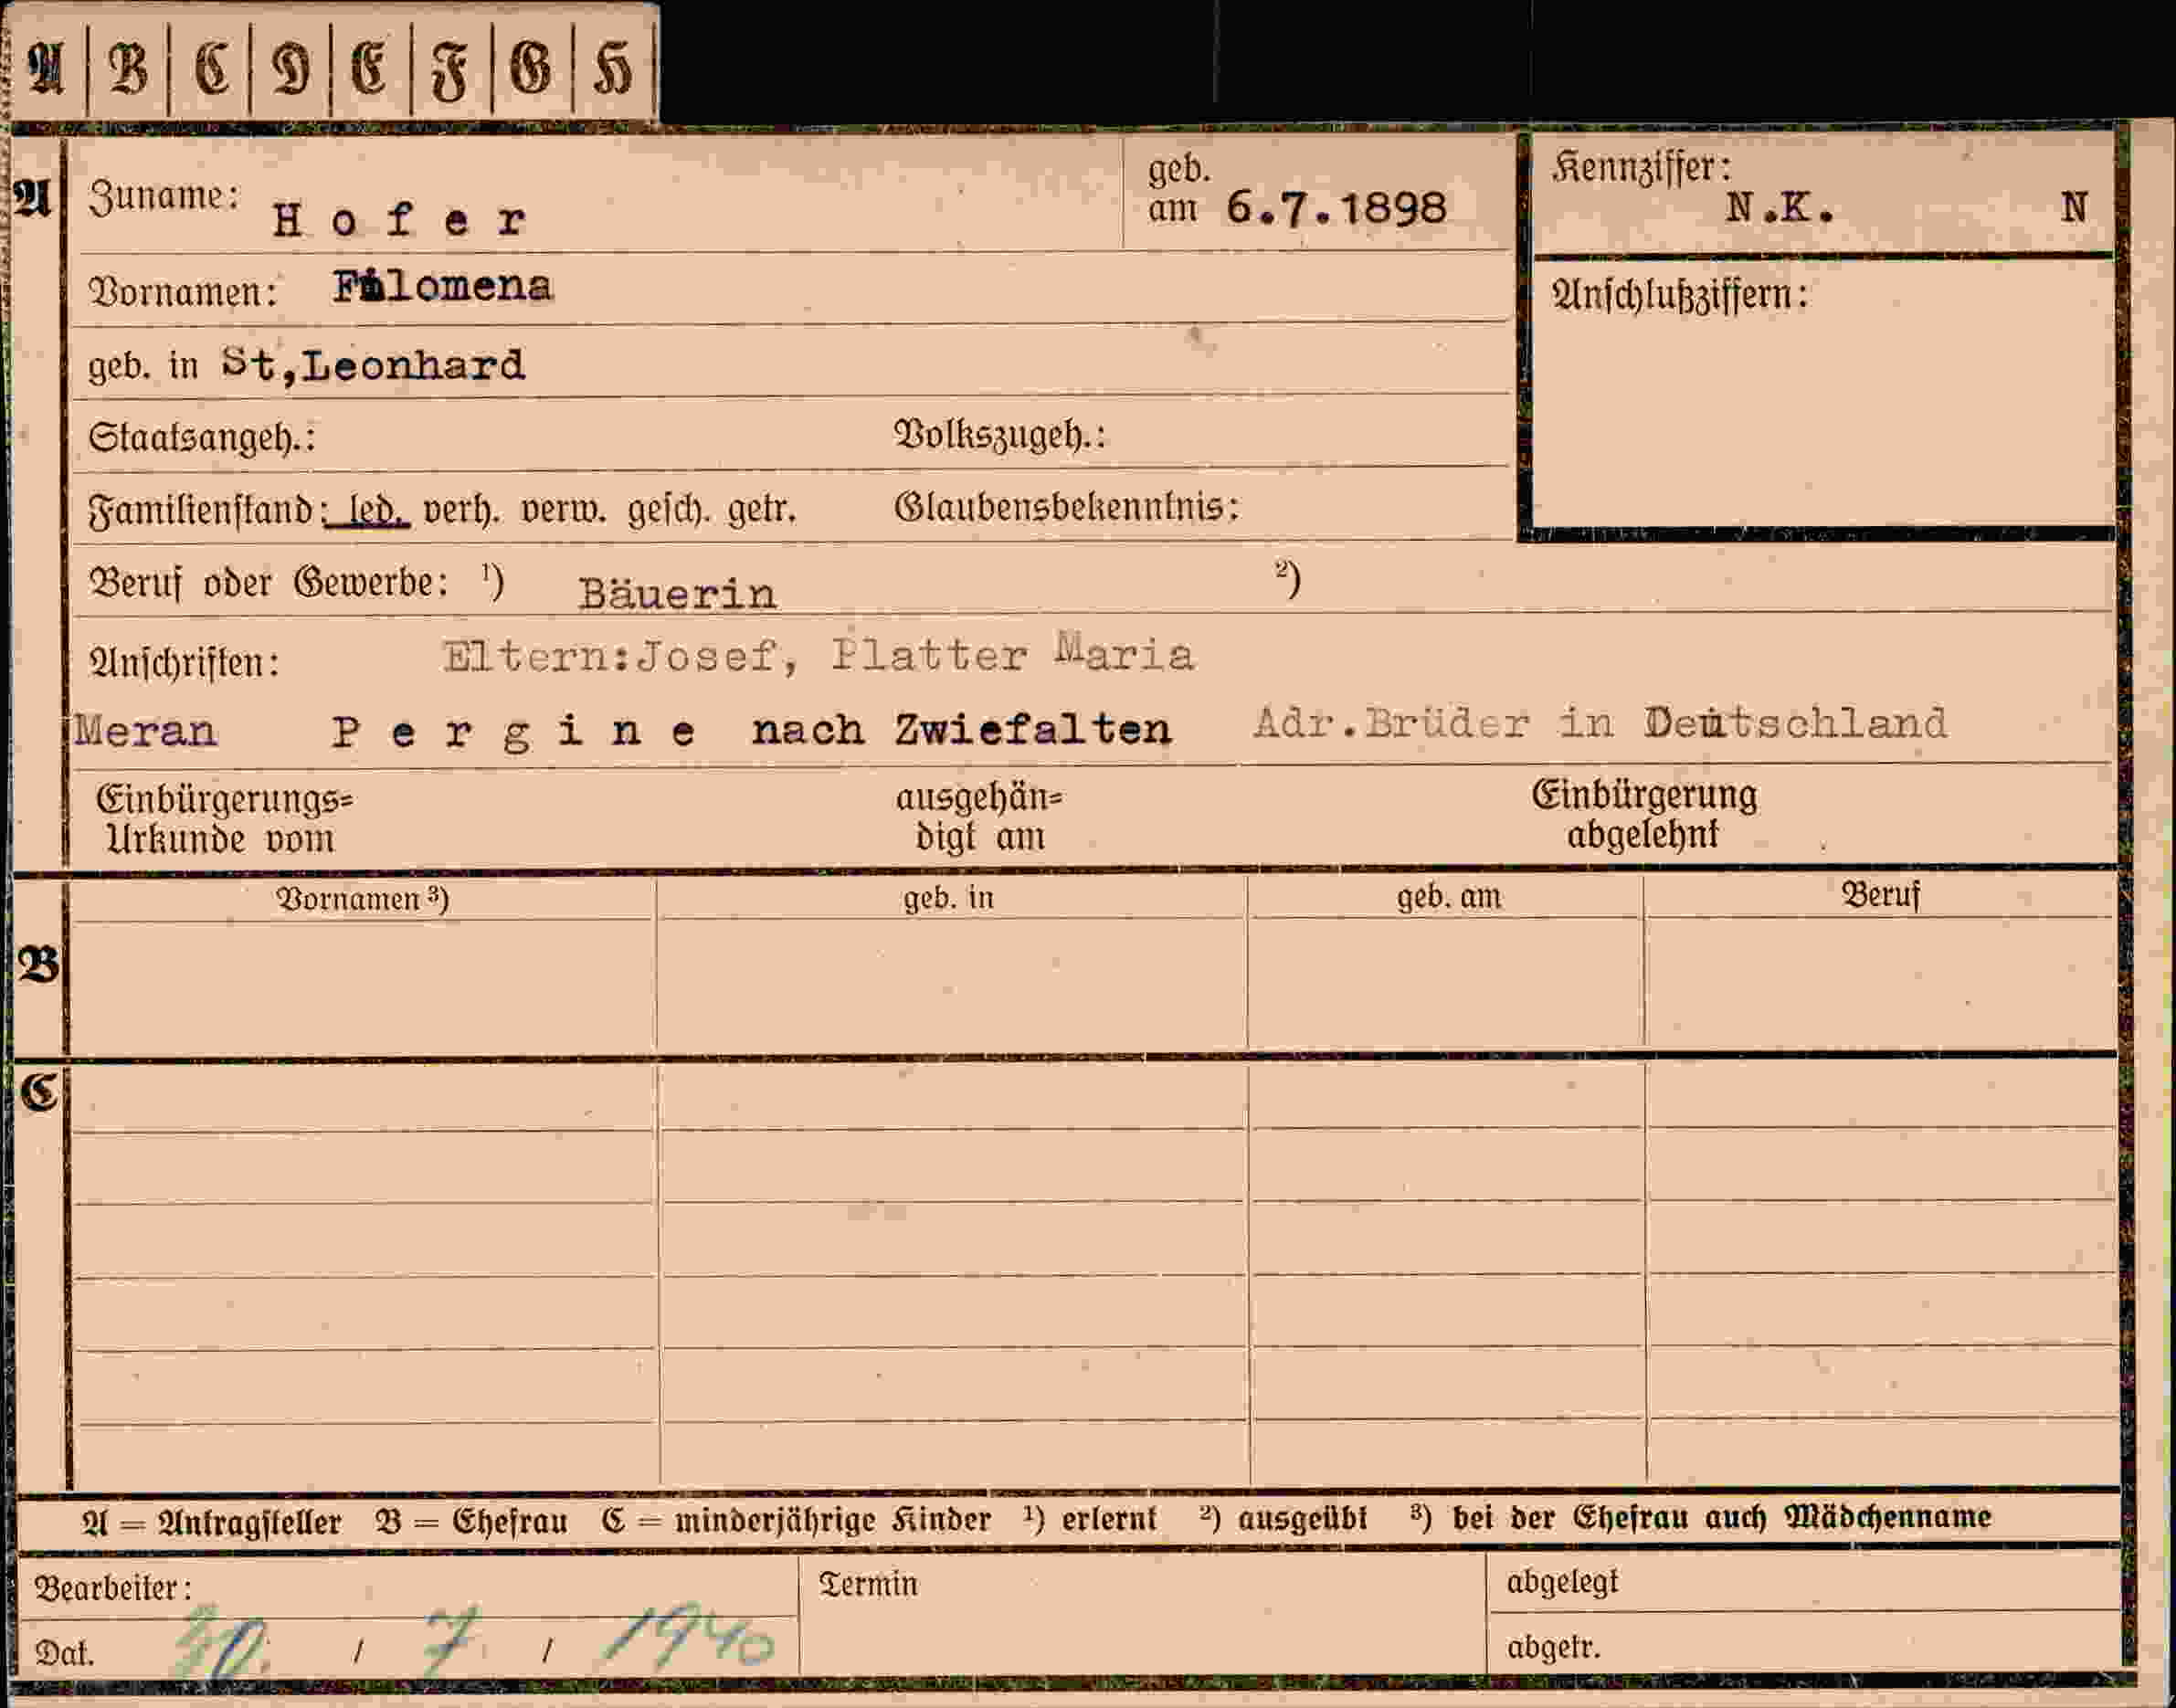 A B C D E F G H
A Zuname: Hofer geb. am 6.7.1898 Kennziffer: N.K. N
Vornamen: Filomena Anschlußziffern:
geb. in St,Leonhard
Staatsangeh.: Volkszugeh.:
Familienstand: led. verh. verw. gesch. getr. Glaubensbekenntnis:
Beruf oder Gewerbe: ¹) Bäuerin ²)
Anschriften: Eltern:Josef, Platter Maria
Meran Pergine nach Zwiefalten Adr.Brüder in Deutschland
Einbürgerungs= ausgehän= Einbürgerung
Urkunde vom digt am abgelehnt
Vornamen ³) geb. in geb. am Beruf
B
C
A = Antragsteller B = Ehefrau C = minderjährige Kinder ¹) erlernt ²) ausgeübt ³) bei der Ehefrau auch Mädchenname
Bearbeiter: Termin abgelegt
Dat. / 7 / 1940 abgetr.